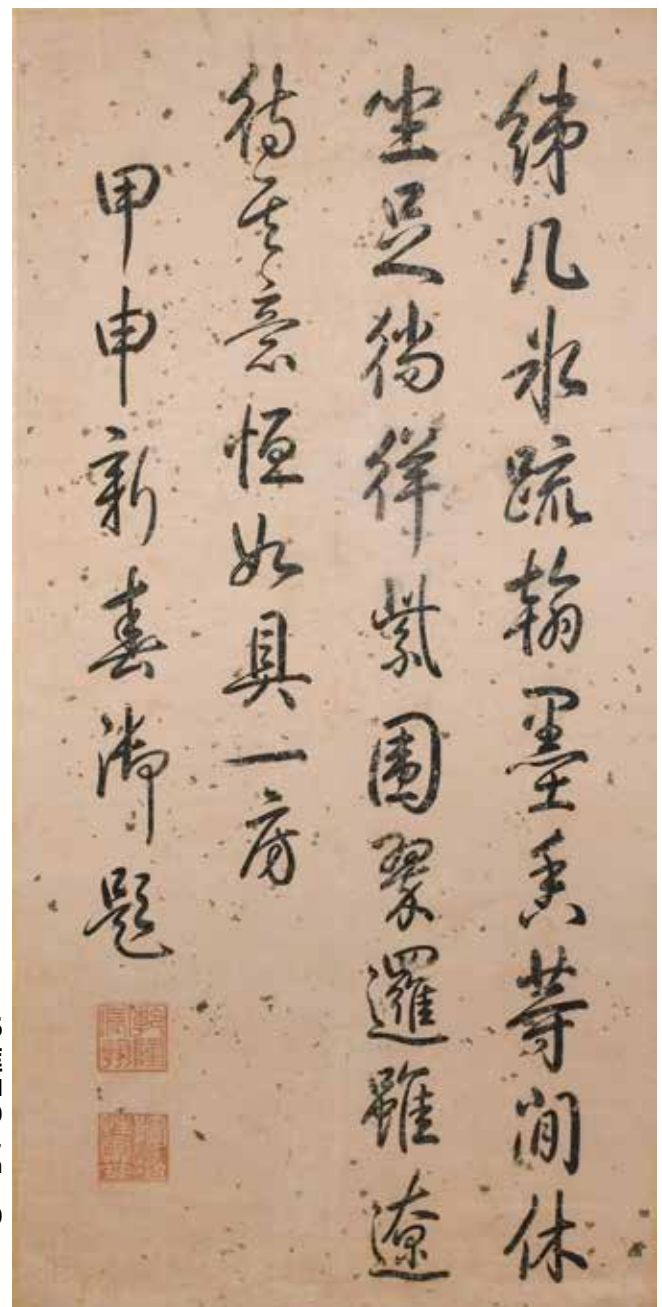 綈几冰疏翰墨香等閒休
坐足徜徉紫圍翠邏雖遼
待其意恒如具一房
甲申新春御題